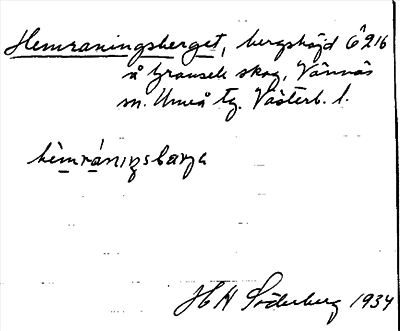 Hemraningsberget, bergshöjd 6^216
å Granseles skog, Vännäs
sn. Umeå tg. Västerb. l.
hèmrániŋsbarja
H N Söderberg 1934